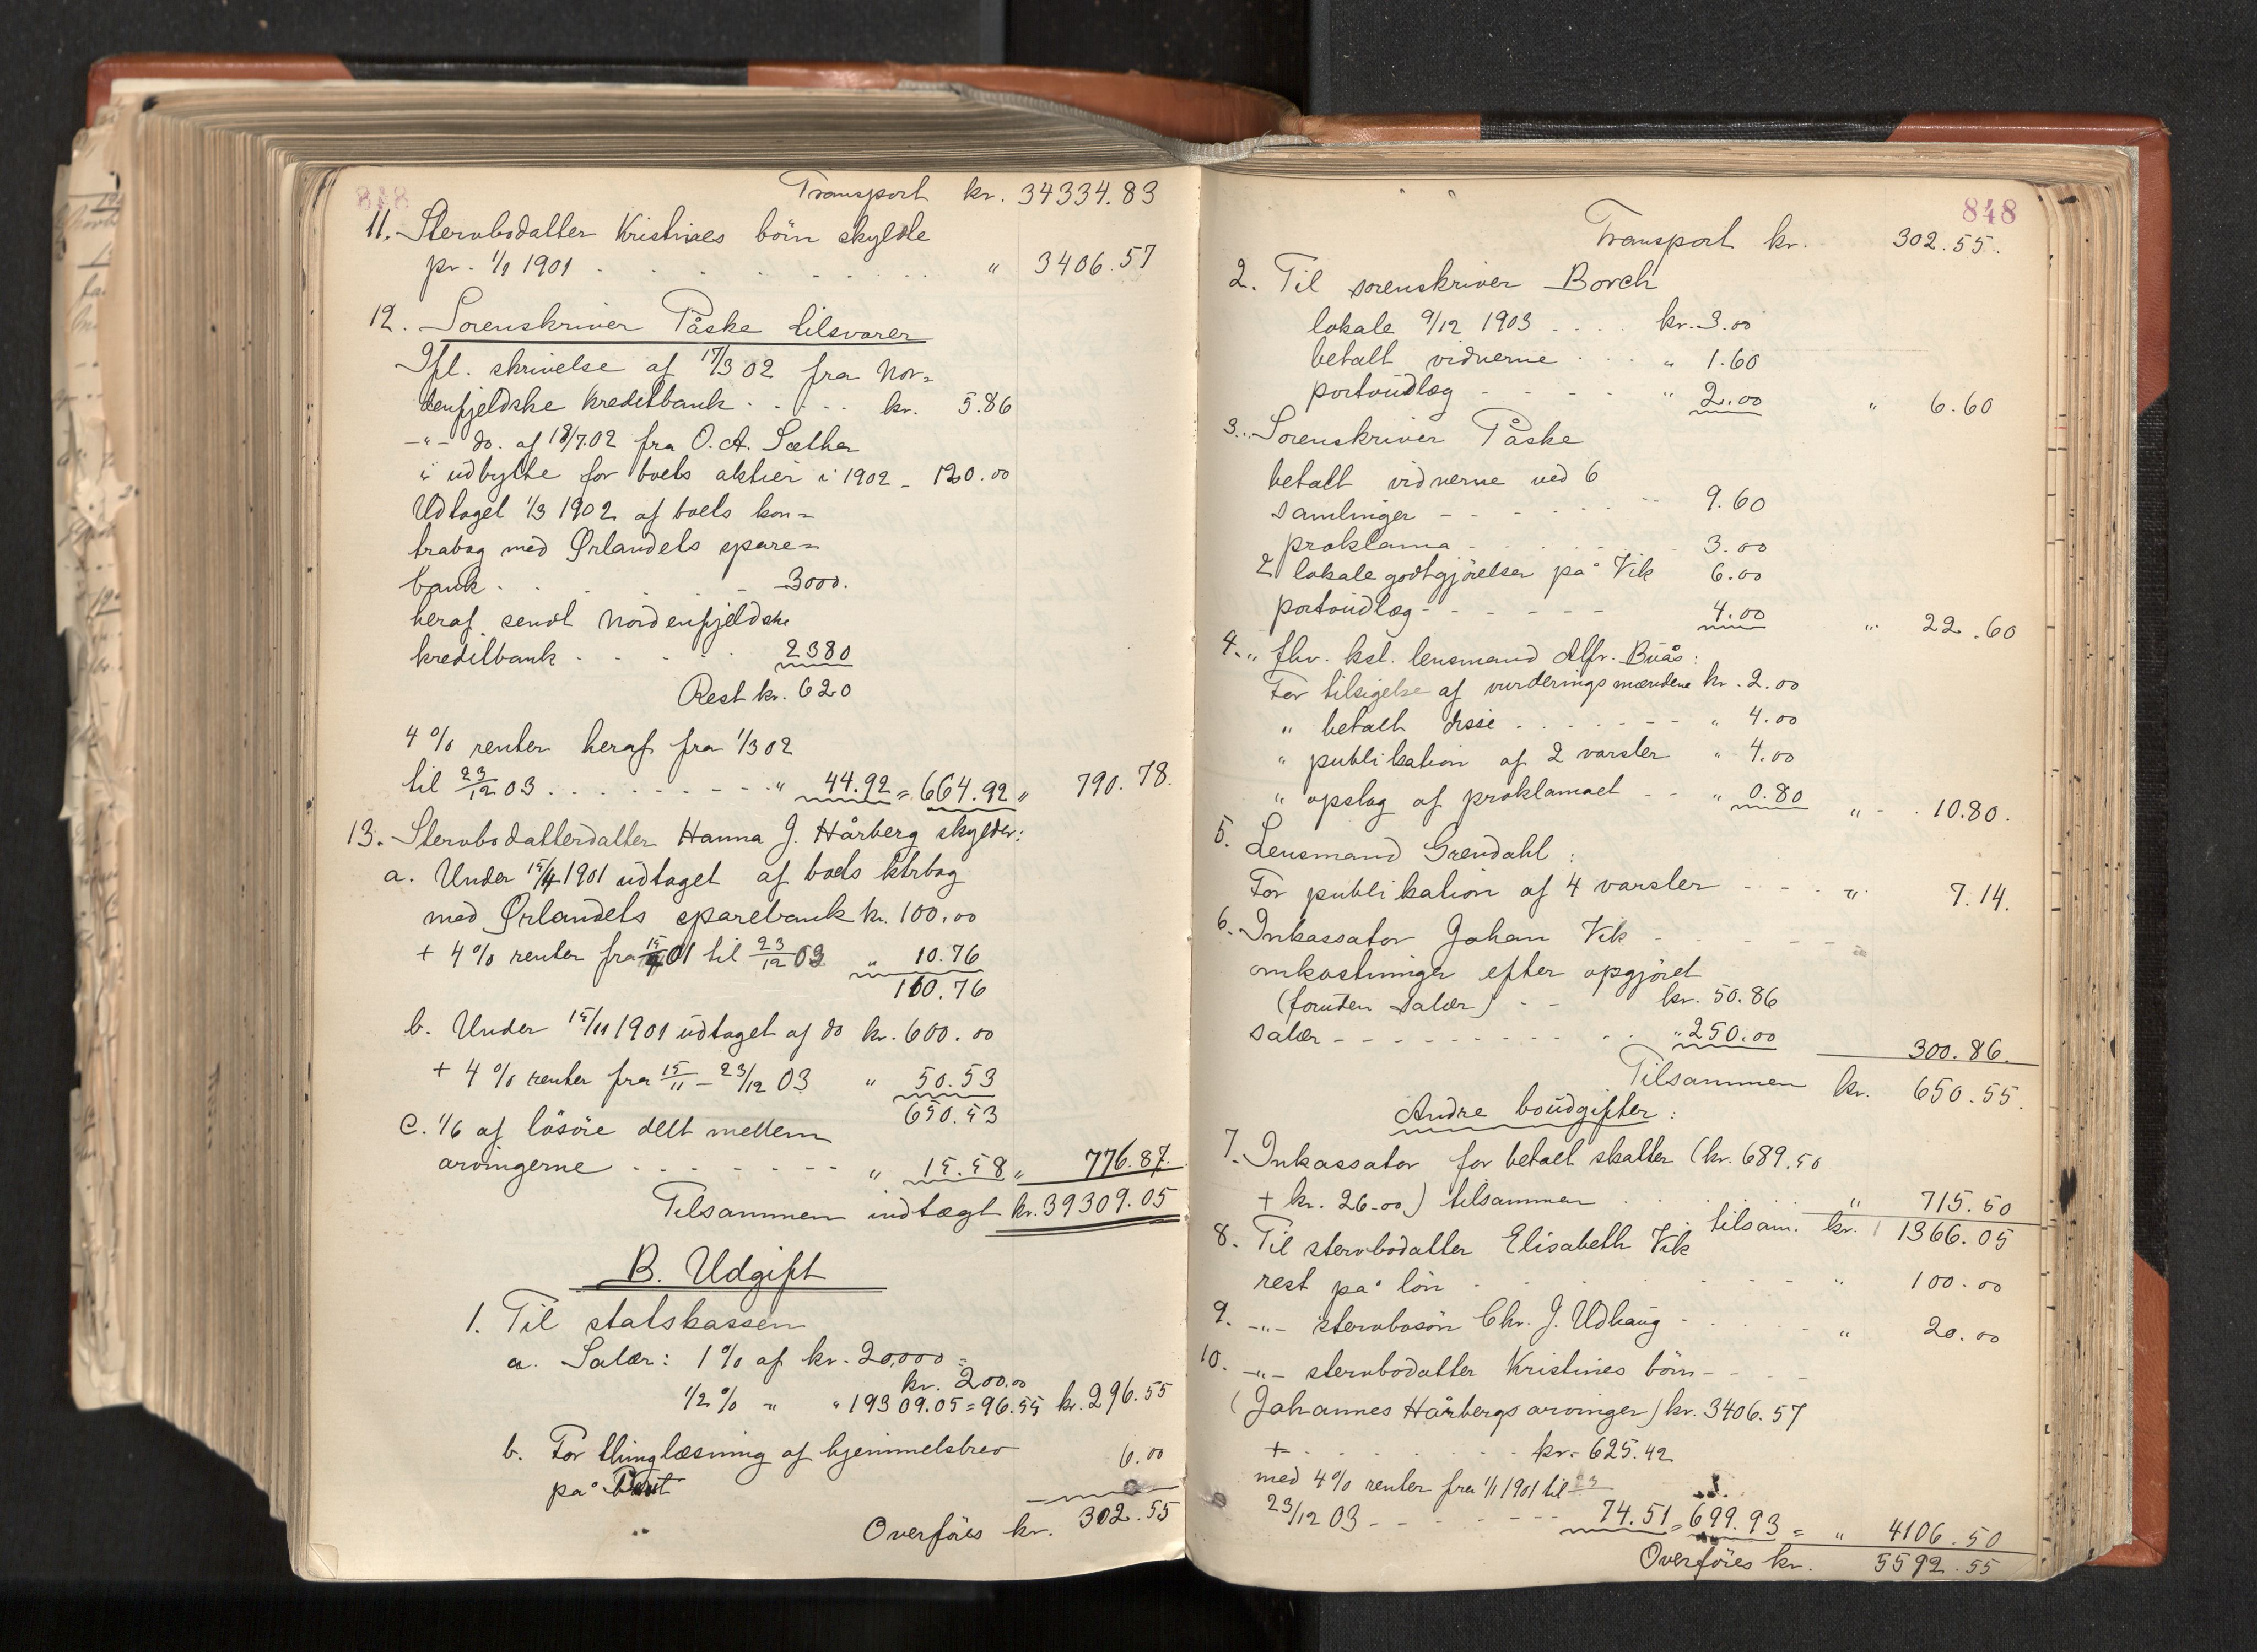 Transport kr. 34334.83
11. Stervbodatter Kristines börn skyldte
pr. 1/1 1901 . . . . . . . . " 3406.57
12. Sorenskriver Påske tilsvarer
Ifl. skrivelse af 17/3 02 fra Nor-
denfjeldske kreditbank . . . . . kr. 5.86
-"- do. af 18/7.02 fra O. A. Sæther
i udbytte for boets aktier i 1902 - 120.00
Udtaget 1/3 1902 af boets kon-
trabog med Ørlandets spare-
bank . . . . . 3000.
heraf sendt Nordenfjeldske
kreditbank . . . . . 2380
Rest kr. 620
4 % renter heraf fra 1/3 02
til 23/12 03 . . . . . . . . " 44.92 = 664.92 " 790.78.
13. Stervbodatterdatter Hanna J. Hårberg skylder:
a. Under 15/4 1901 udtaget af boets ktrbog
med Ørlandets sparebank kr. 100.00
+ 4 % renter fra 15/4 01 til 23/12 03 " 10.76
110.76
b. Under 15/11 1901 udtaget af do kr. 600.00
+ 4 % renter fra 15/11 - 23/12 03 " 50.53
650.53
c. 1/6 af lösöre delt mellem
arvingerne . . . . . . . " 15.58 " 776.87.
Tilsammen indtægt kr. 39309.05
B. Udgift
1. Til statskassen
a. Salær: 1 % af kr. 20,000 =
kr. 200.00
1/2 % " " 19309.05 = 96.55 kr. 296.55
b. For thinglæsning af hjemmelsbrev 6.00
på
Overföres kr. 302.55
848
Transport kr. 302.55.
2. Til sorenskriver Borch
lokale 9/12 1903 . . . . kr. 3.00
betalt vidnerne . . . " 1.60
portoudlæg - - - - " 2.00 " 6.60
3. " Sorenskriver Påske
betalt vidnerne ved 6
samlinger - - - - - - 9.60
proklama - . . . . . 3.00
2 lokalegodtgjörelser på Vik 6.00
portoudlæg - - - - - - 4.00 " 22.60
4. " fhv. kst. lensmand Alfr. Buås:
For tilsigelse af vurderingsmændene kr. 2.00
" betalt disse . . . . . . - - " 4.00
" publikation af 2 varsler " 4.00
" opslag af proklamaet - - " 0.80 " - . 10.80.
5. Lensmand Grendahl:
For publikation af 4 varsler - - - . " 7.14.
6. Inkassator Johan Vik - - - - - -
omkostninger efter opgjöret
(foruden salær) - - kr. 50.86
salær - - - - - - - - - . . " 250.00 300.86.
Tilsammen kr. 650.55.
Andre boudgifter:
7. Inkassator for betalt skatter (kr. 689.50
+ kr. 26.00) tilsammen . . . . . " 715.50
tilsam. kr. 1366.05
8. Til stervbodatter Elisabeth Vik
rest på lön . . . . . . - - - " 100.00
9. -"- stervbosön Chr. J. Udhaug - . . . . . " 20.00
10. -"- stervbodatter Kristines börn - - - -
(Johannes Hårbergs arvinger) kr. 3406.57
+ . . . . . . . kr. 625.42
med 4 % renter fra 1/1 1901 til 23
23/12 03 - - - - - - - - 74.51 = 699.93 = " 4106.50
Overföres kr. 5592.55